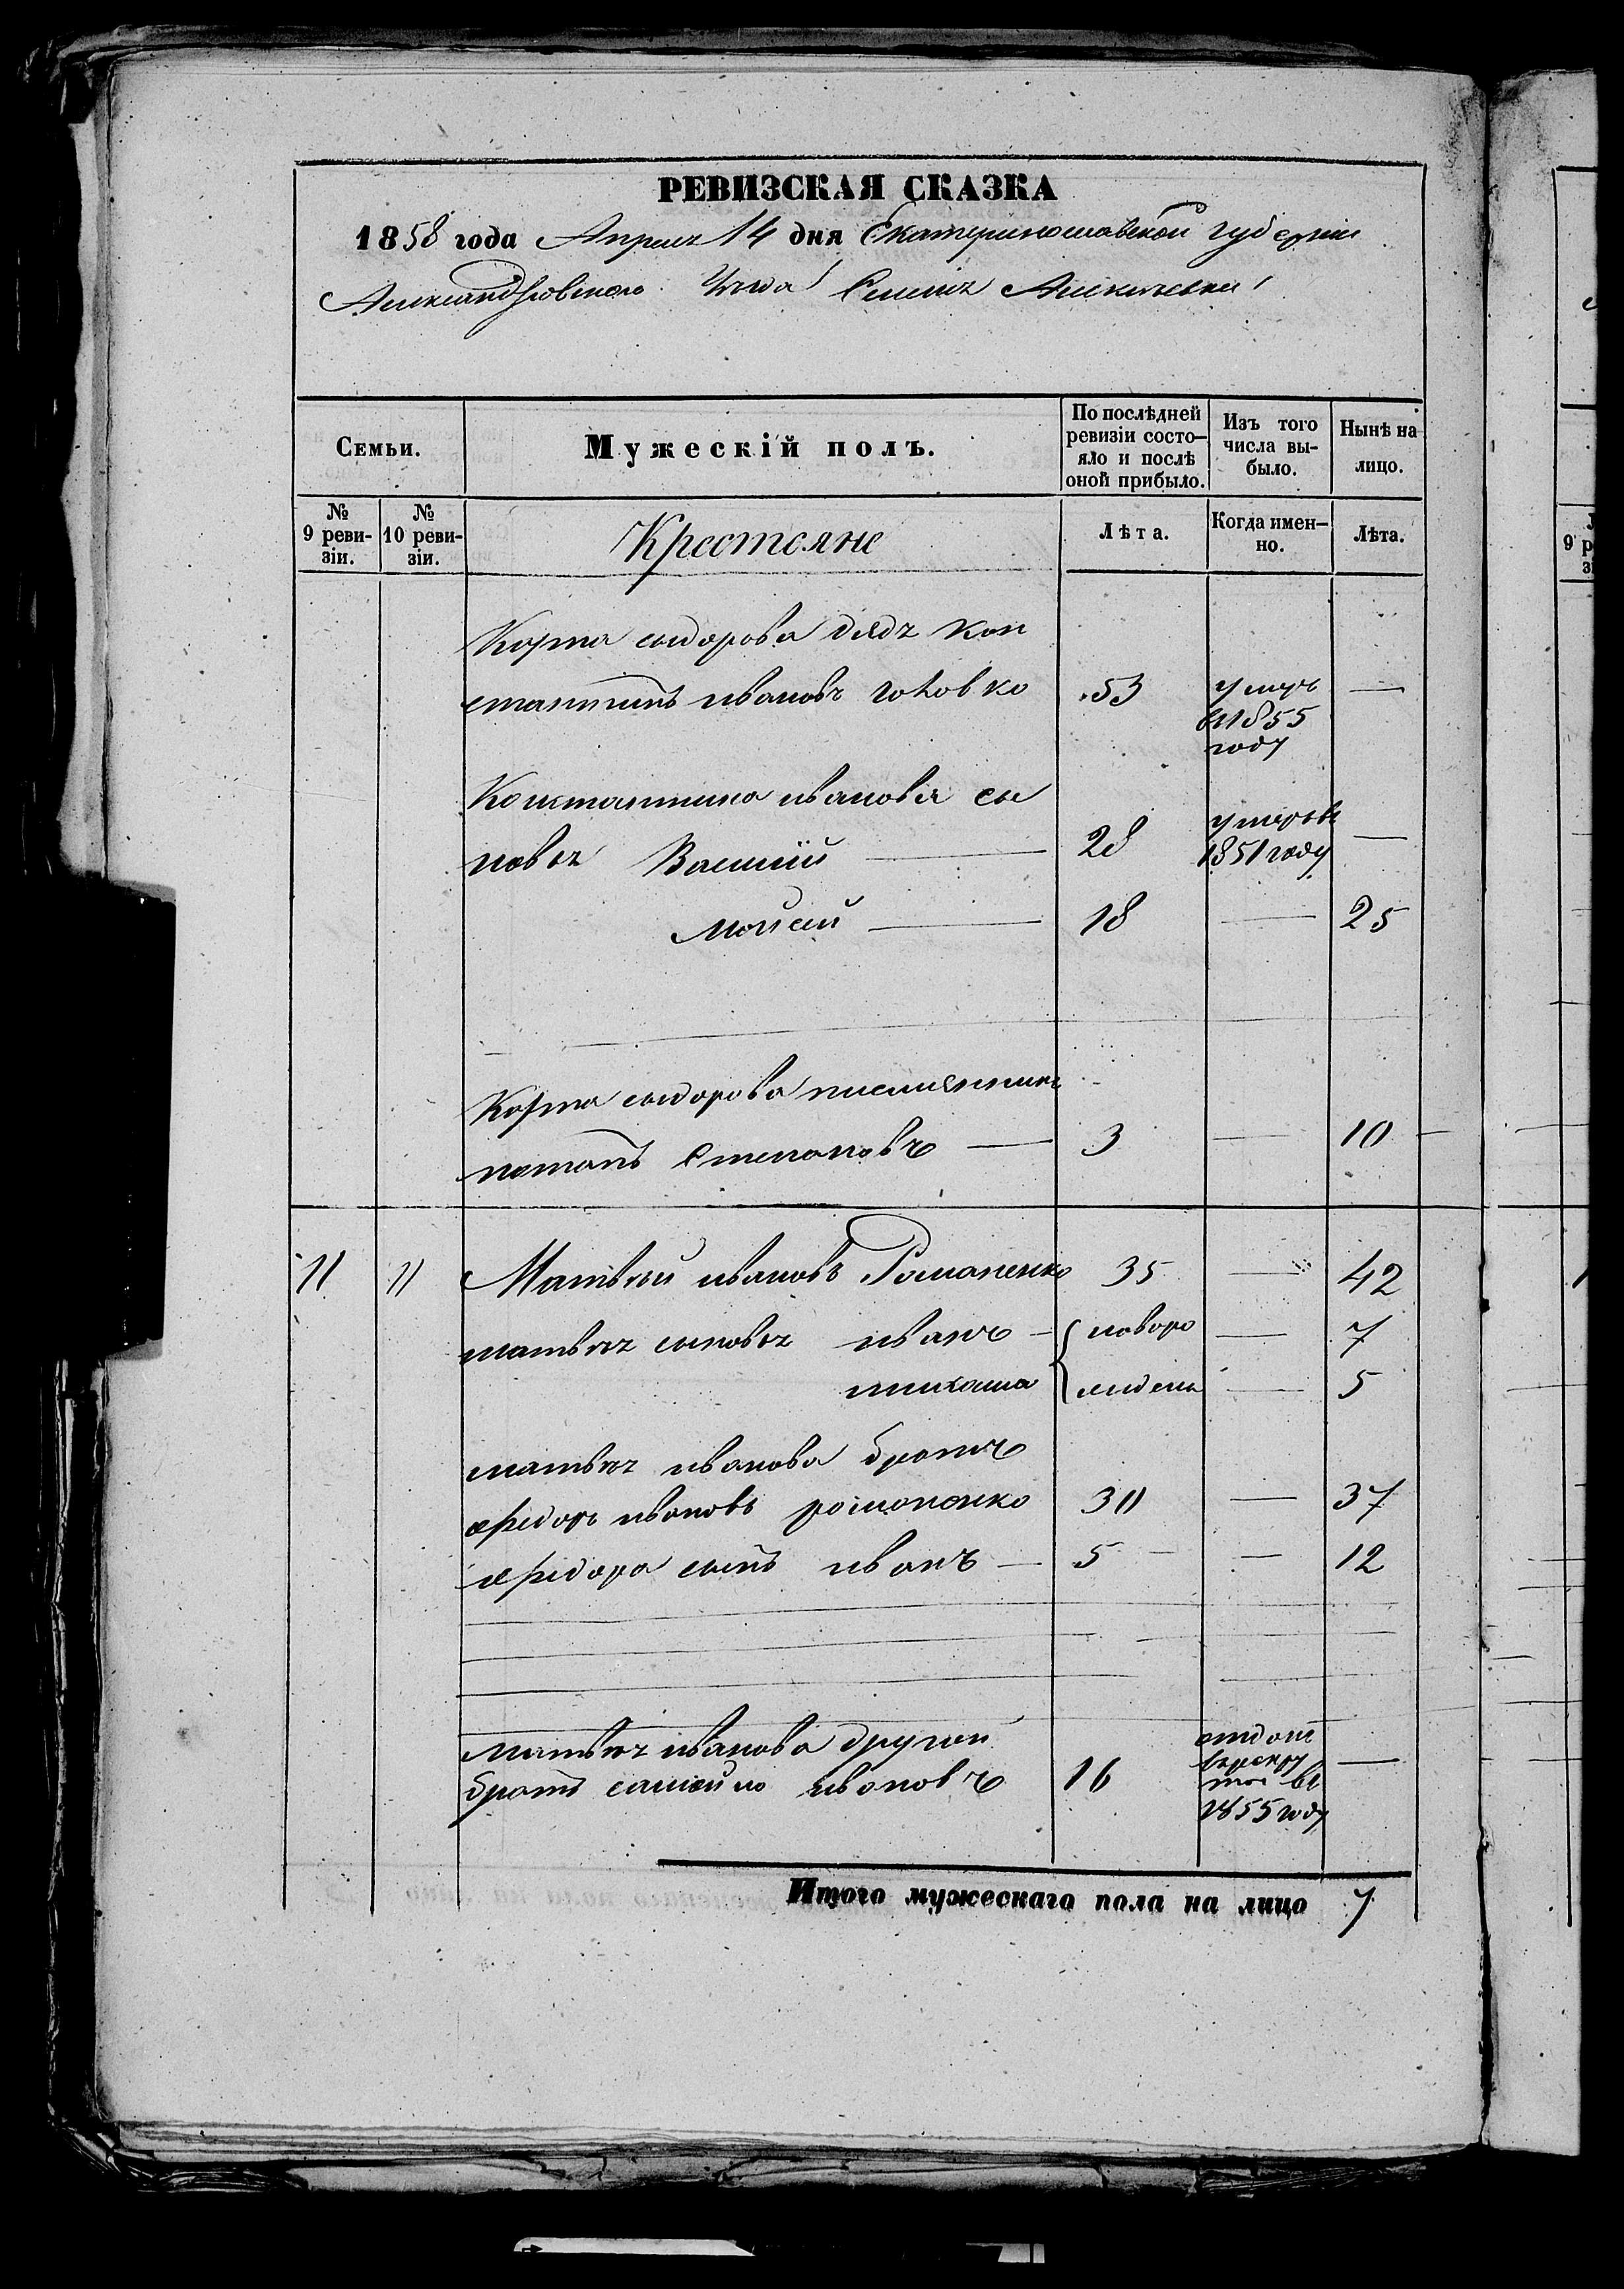 РЕВИЗСКАЯ СКАЗКА
1858 года Апреля 14 дня Екатеринославской губернии
Александровского Уезда Селения
Семьи.
Мужескій полъ.
По послѣдней ревизіи состо-яло и послѣ оной прибыло.
Изъ того числа вы-было.
Нынѣ на лицо.
№ 9 реви-зіи.
№ 10 реви-зіи.
Крестьяне
Лѣта.
Когда имен-но.
Лѣта.
Карпа сидорова дядя кон
стантинъ ивановъ головко 53 умеръ въ 1855 году —
Константина иванова сы
новья Василій — 28 умеръ въ 1851 году —
Мойсей — 18 — 25
Карпа сидорова племянникъ
потапъ Степановъ — 3 — 10
11 11 Матвей ивановъ Романенко 35 — 42
матвея сыновья иванъ — { новоро — 7
{ жденъ — 5
матвея иванова братъ
федоръ ивановъ романенко 30 — 37
федора сынъ иванъ — 5 — 12
матвея иванова другой
братъ самойло ивановъ 16 отдан в рекру ты въ 1855 году —
Итого мужескаго пола на лицо 7
9